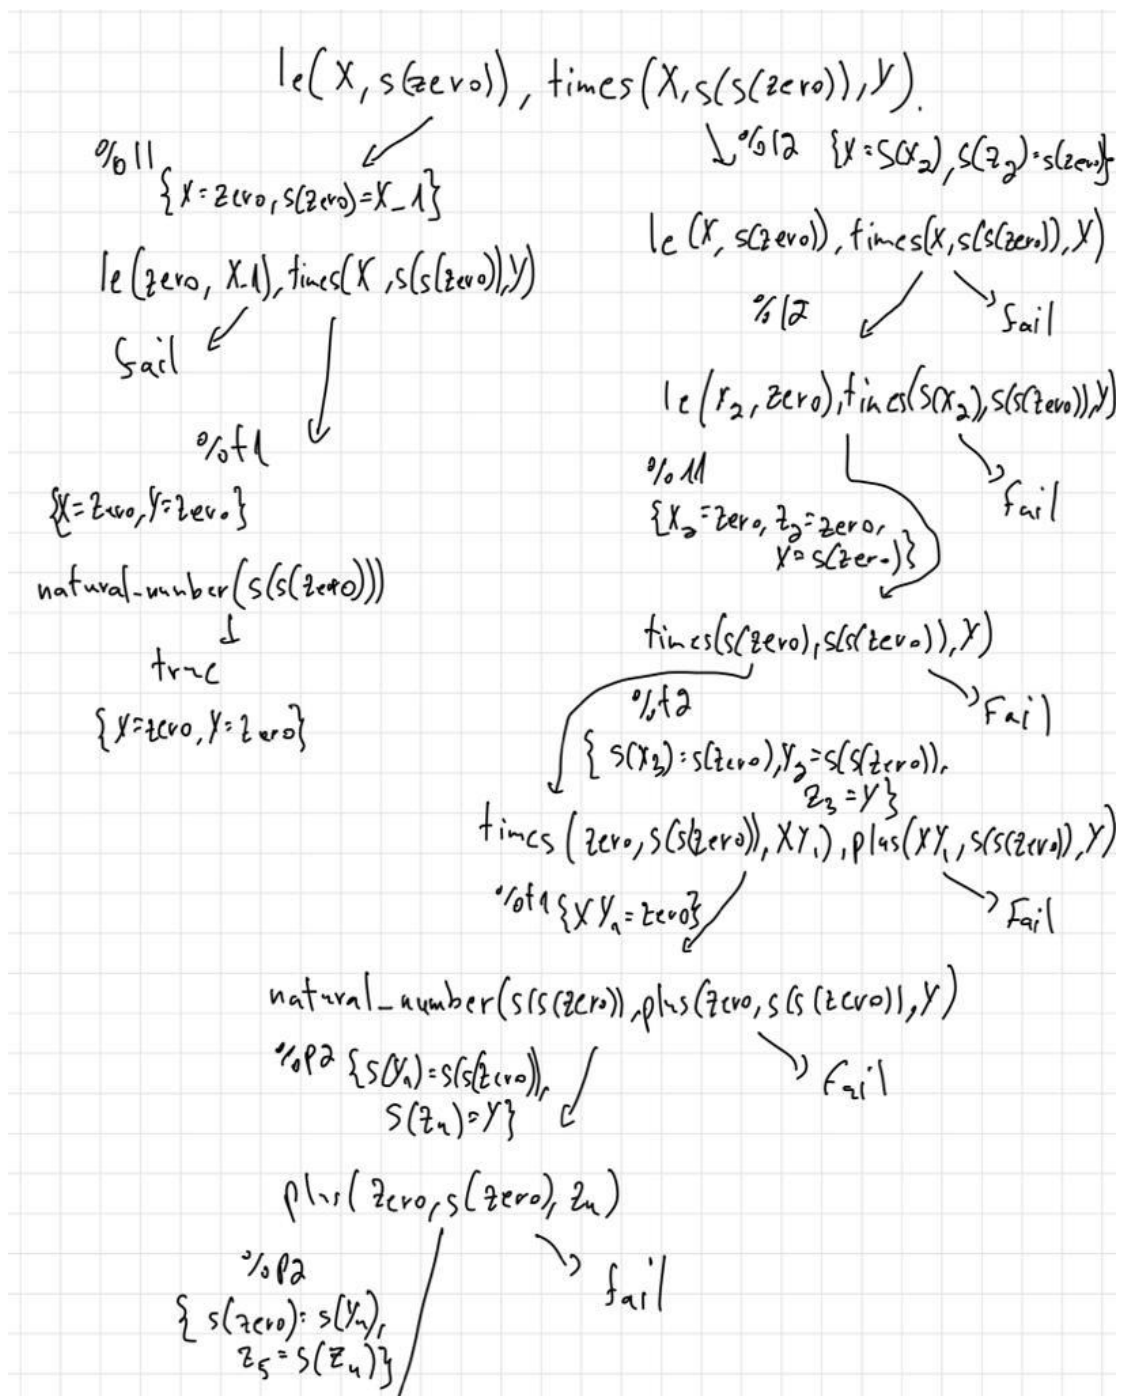 le(X, s(zero)), times(X, s(s(zero)), Y).
%l1
{X=zero, s(zero)=X_1}
le(zero, X_1), times(X, s(s(zero)), Y)
fail
%t1
{X=zero, Y=zero}
natural_number(s(s(zero)))
true
{X=zero, Y=zero}
%l2 {X=s(X₂), s(Z₂)=s(zero)}
le(X, s(zero)), times(X, s(s(zero)), Y)
%l2
fail
le(X₂, zero), times(s(X₂), s(s(zero)), Y)
%l1
fail
{X₂=zero, Z₂=zero,
X=s(zero)}
times(s(zero), s(s(zero)), Y)
%t2
Fail
{s(X₃)=s(zero), Y₃=s(s(zero)),
Z₃=Y}
times(zero, s(s(zero)), XY₁), plus(XY₁, s(s(zero)), Y)
%t1 {XY₁=zero}
Fail
natural_number(s(s(zero)), plus(zero, s(s(zero)), Y)
%p2 {s(Y₄)=s(s(zero)),
s(Z₄)=Y}
Fail
plus(zero, s(zero), Z₄)
%p2
fail
{s(zero)=s(Y₄),
Z₅=s(Z₄)}